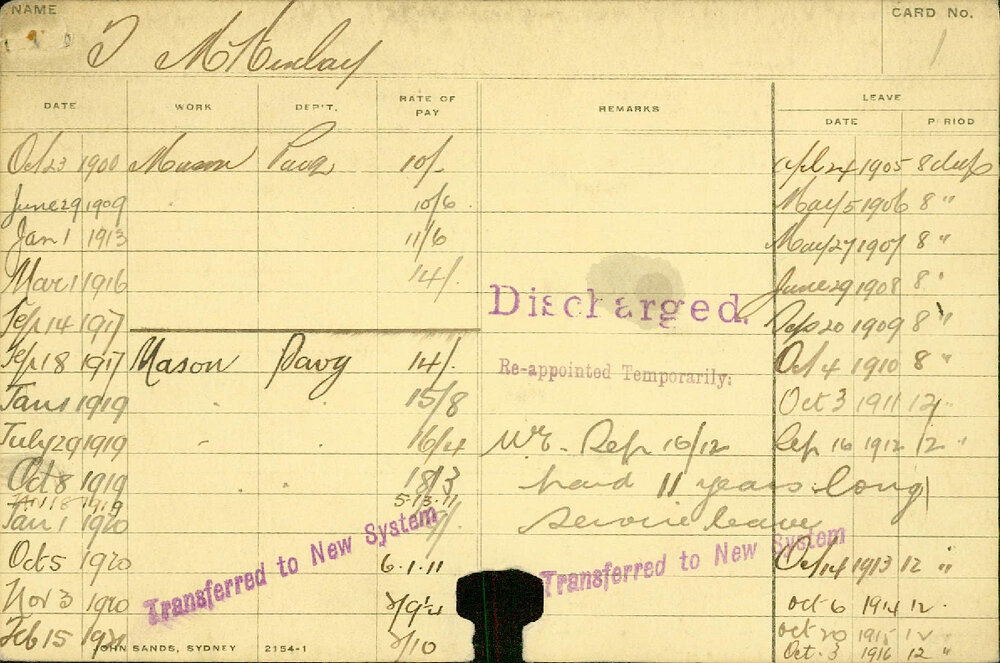 NAME T McKinlay CARD No. 1
DATE WORK DEP'T. RATE OF PAY REMARKS LEAVE
DATE PERIOD
Oct 23 1900 Mason Pavg 10/- Apl 24 1905 8 days
June 29 1909 10/6 May 5 1906 8 "
Jan 1 1913 11/6 May 27 1907 8 "
Mar 1 1916 14/- June 29 1908 8 "
Sep 14 1917 Discharged. Sep 20 1909 8 "
Sep 18 1917 Mason Pavg 14/- Re-appointed Temporarily: Oct 4 1910 8 "
Jan 1 1919 15/8 Oct 3 1911 12
July 29 1919 16/4 Sep 16/12 Sep 16 1912 12 "
Oct 8 1919 18/3 hard 11 years long
5-13-11
Jan 1 1920 service leave
Oct 5 1920 6.1.11 Oct 14 1913 12 "
Transferred to New System
Transferred to New System
Nov 3 1920 Oct 6 1914 12
Feb 15 2/10 Oct 20 1915 12
JOHN SANDS, SYDNEY 2154-1 Oct. 3 1916 12 "